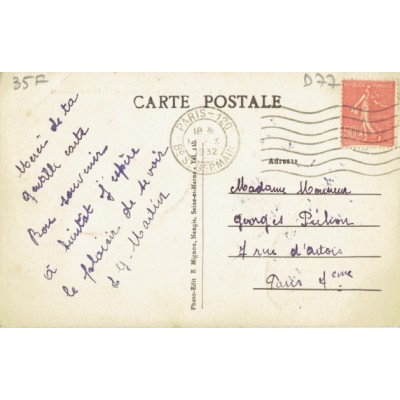 35F
D77
CARTE POSTALE
PARIS-120
18
1932
Bd St GERMAIN
Adresse
Merci de ta
gentille carte
Bons souvenirs
à bientôt j'espère
le plaisir de te voir
G. Martin
Madame Monsieur
Georges
7 rue d'artois
Paris
Photo-Edit E. Mignon, Nangis, Seine-et-Marne. Tél. 115